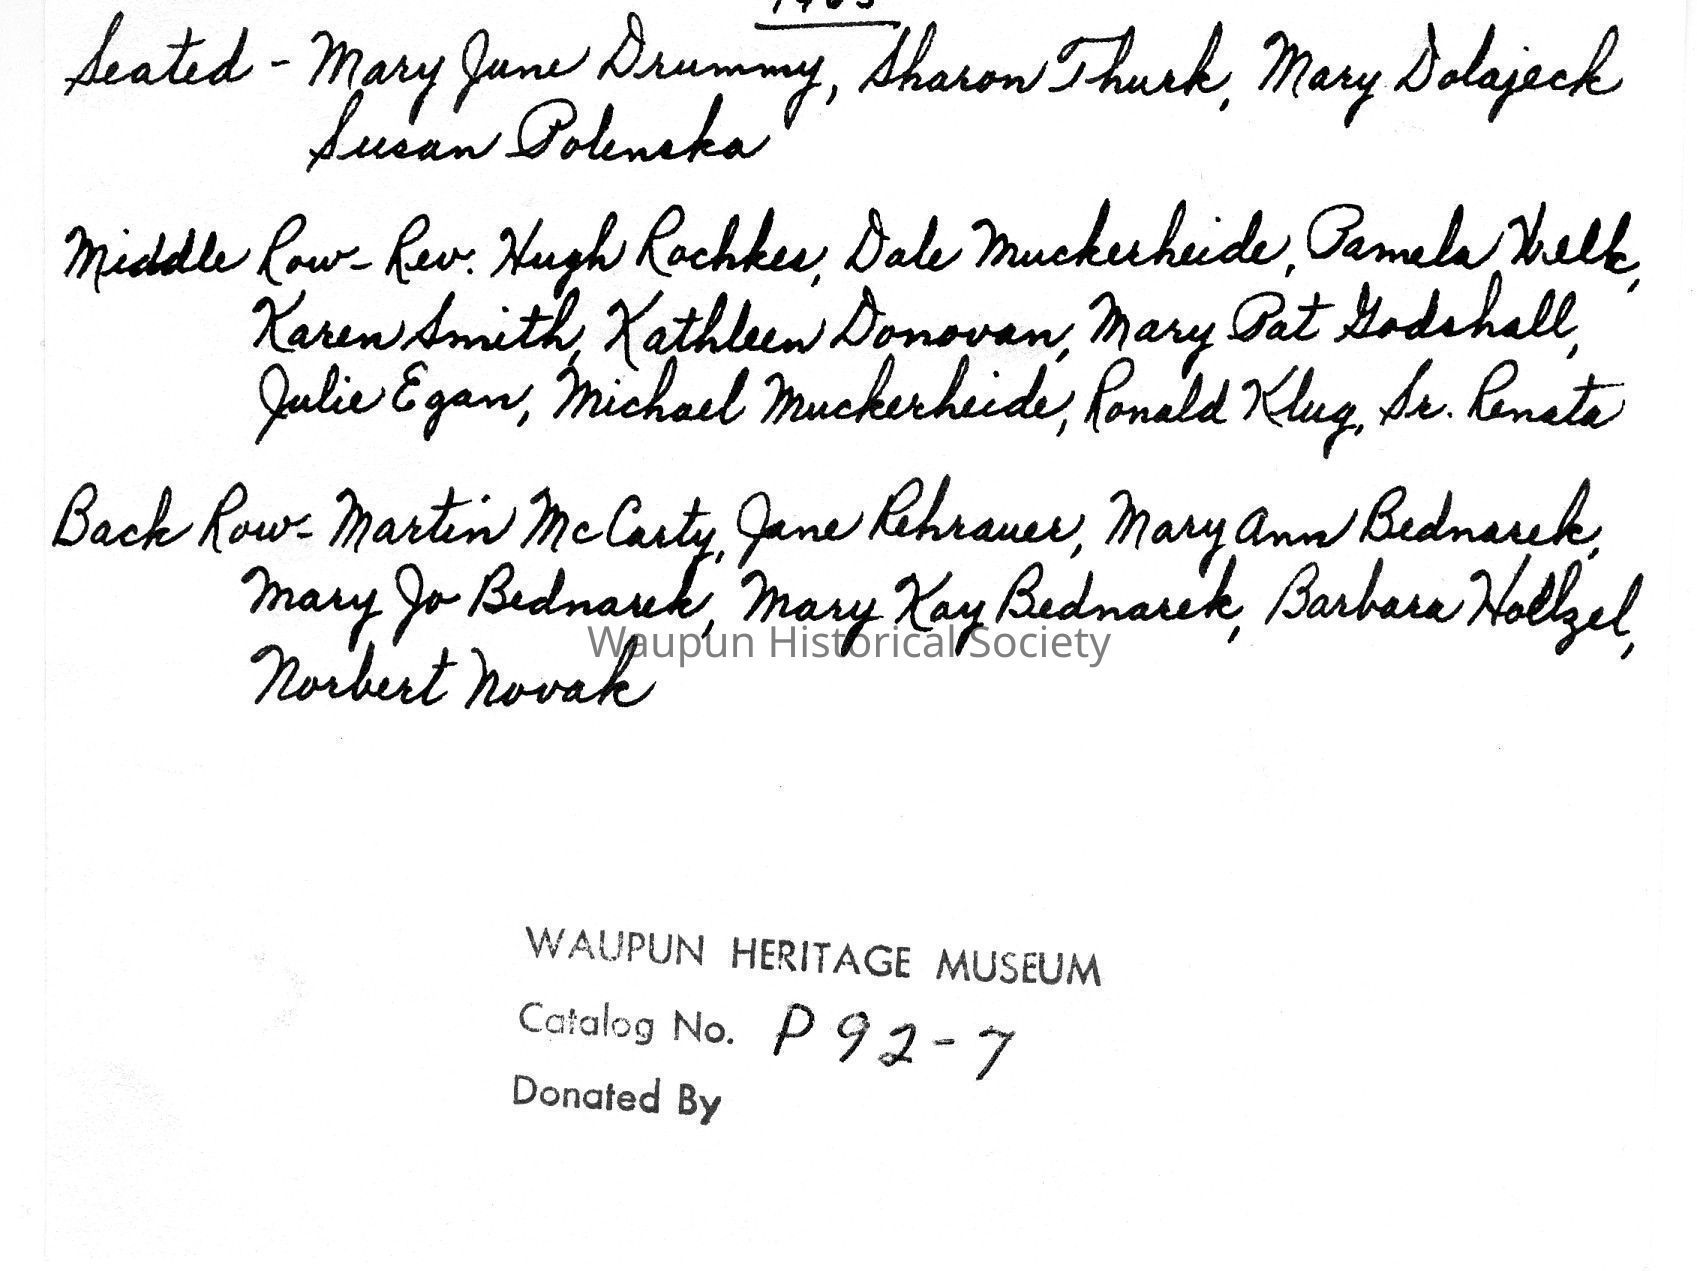 Seated - Mary June Drummy, Sharon Thurk, Mary Dolajeck
Susan Polenska
Middle Row - Rev. Hugh Rochkes, Dale Muckerheide, Pamela Welk,
Karen Smith, Kathleen Donovan, Mary Pat Godshall,
Julie Egan, Michael Muckerheide, Ronald Klug, Sr. Renata
Back Row - Martin McCarty, Jane Rehrauer, Mary Ann Bednarek,
Mary Jo Bednarek, Mary Kay Bednarek, Barbara
Waupun Historical Society
Norbert Novak
WAUPUN HERITAGE MUSEUM
Catalog No. P92-7
Donated By